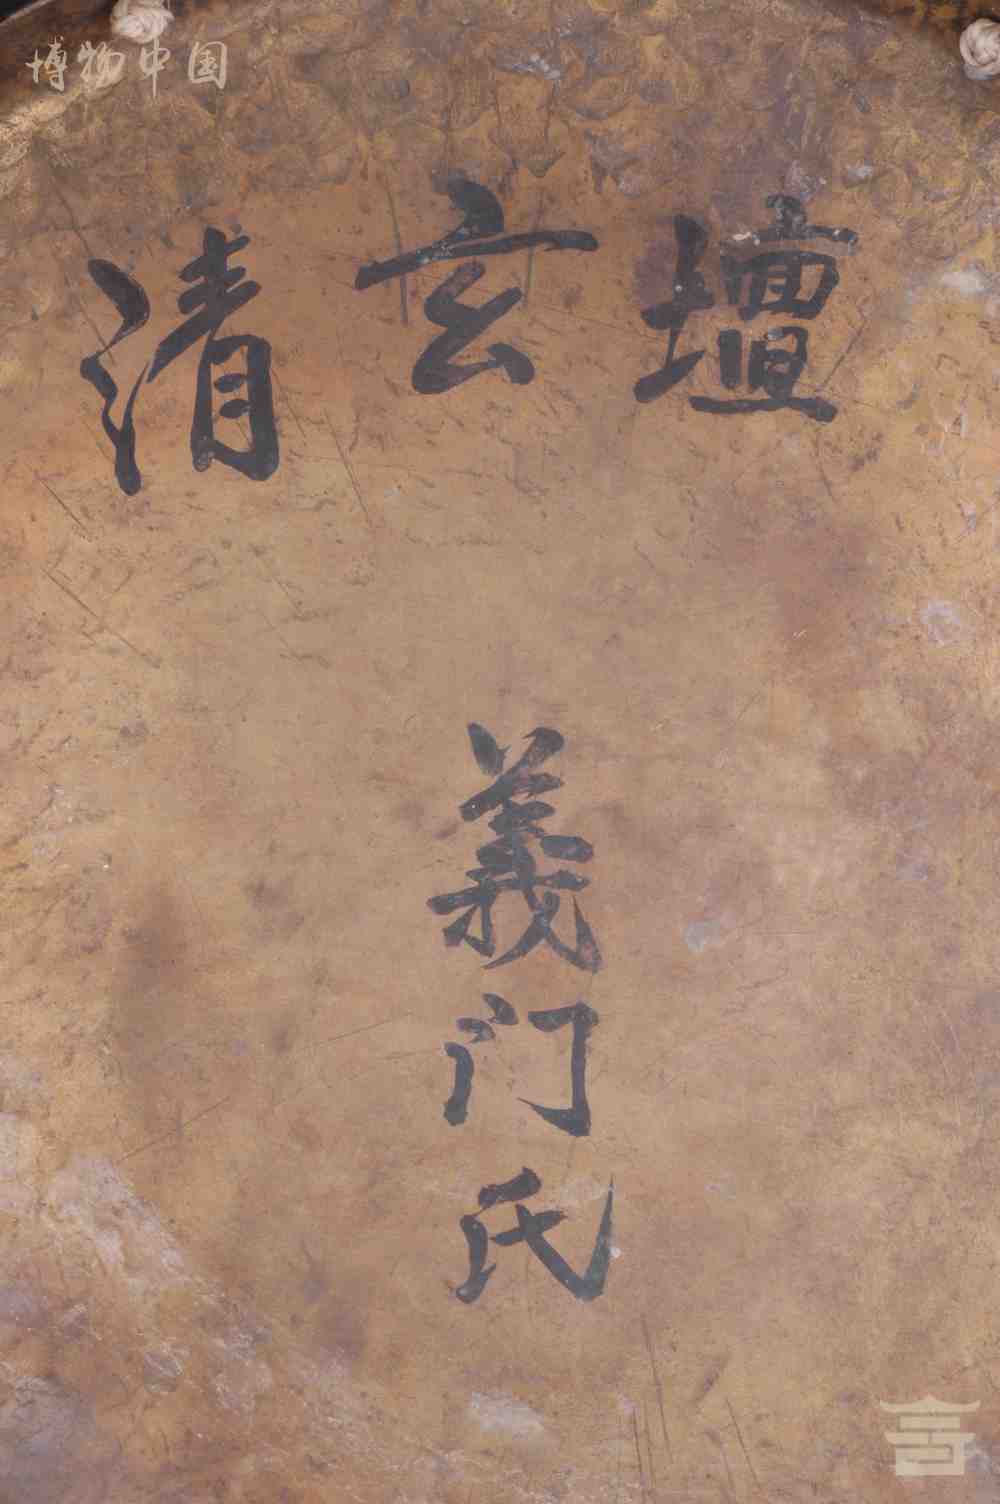 博物中国
壇玄清
義门氏